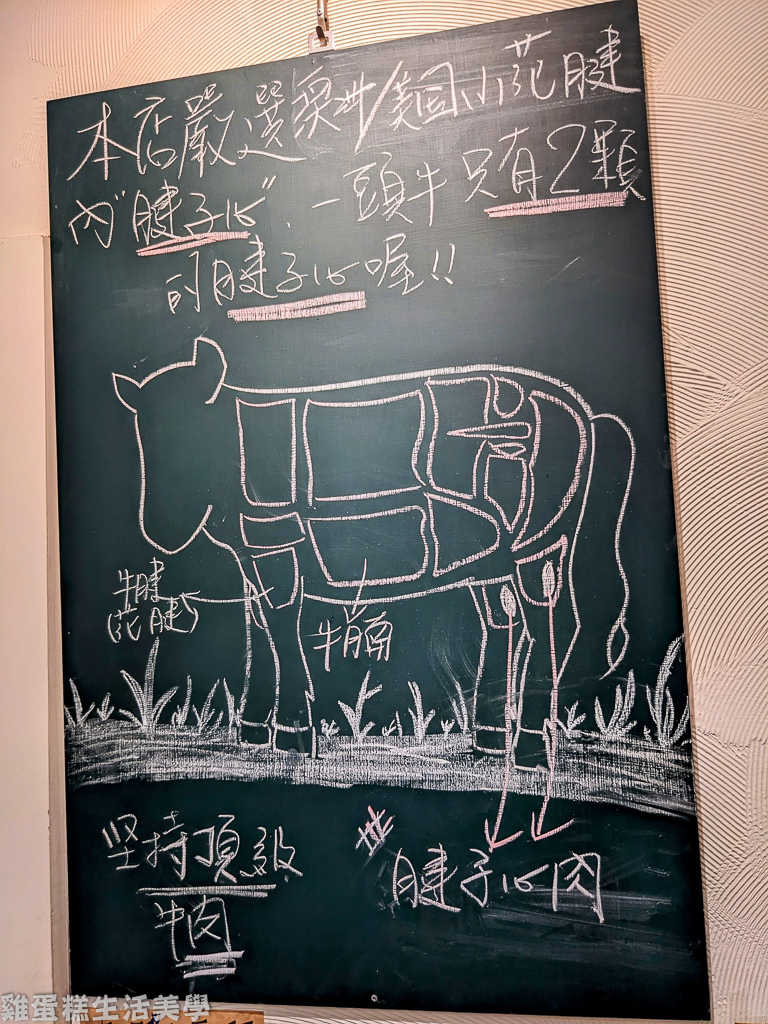 本店嚴選澳洲/美國小花腱
內"腱子心", 一頭牛只有2顆
的腱子心喔!!
牛腱
(花腱)
牛腩
坚持頂級
牛肉
腱子心肉
雞蛋糕生活美學